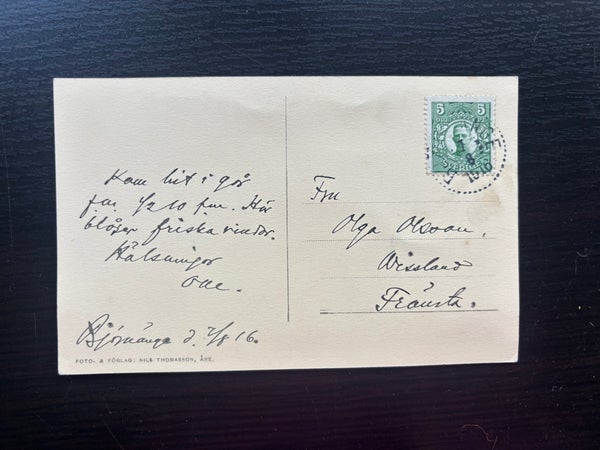 Kom hit i går
fm 1/2 10 fm. Här
blåser friska vindar.
Hälsningar
Olle.
Björnänge d. 7/8 16.
FOTO- & FÖRLAG: NILS THOMASSON, ÅRE.
5 5
SVERIGE
Fru
Olga Olsson,
Wissland
Fränsta.